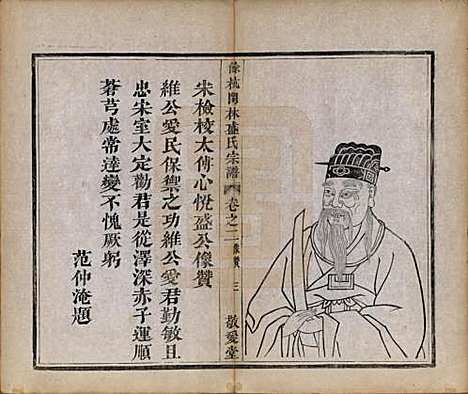 餘杭閑林盛氏宗譜
卷之二
像贊
三
敬愛堂
宋檢校太傅心悅盛公像贊
維公愛民保禦之功維公愛君勤敏且
忠宋室大定勸君是從澤深赤子運順
蒼芎處常達變不愧厥躬
范仲淹題